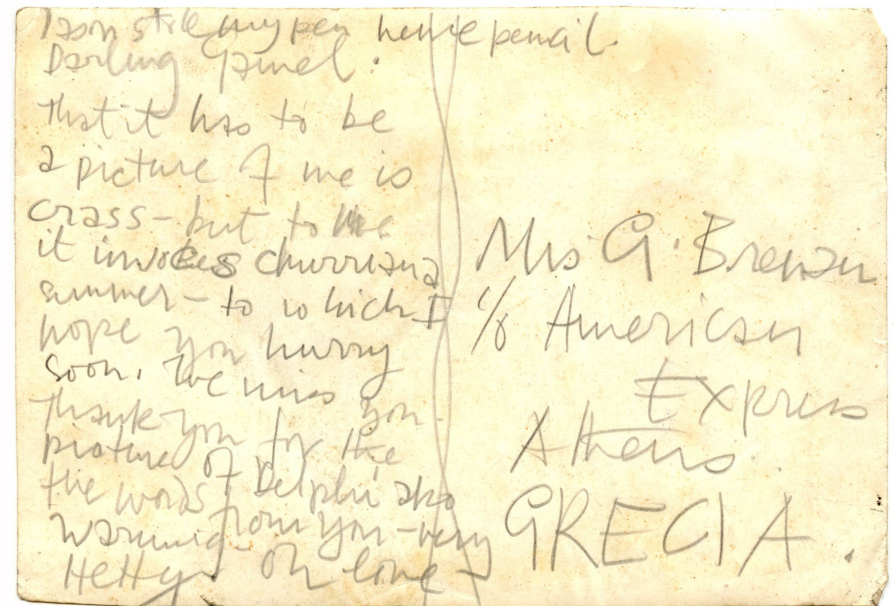 my pen hence pencil.
Darling Gamel.
That it has to be
a picture of me is
crass – but to me
it invokes churriana
summer – to which I
hope you hurry
soon. We miss you –
Thank you for the
picture of Delphi also
the words from you – very
warming. Oh love –
Hetty
Mrs G. Brenan
c/o American
Express
Athens.
GRECIA